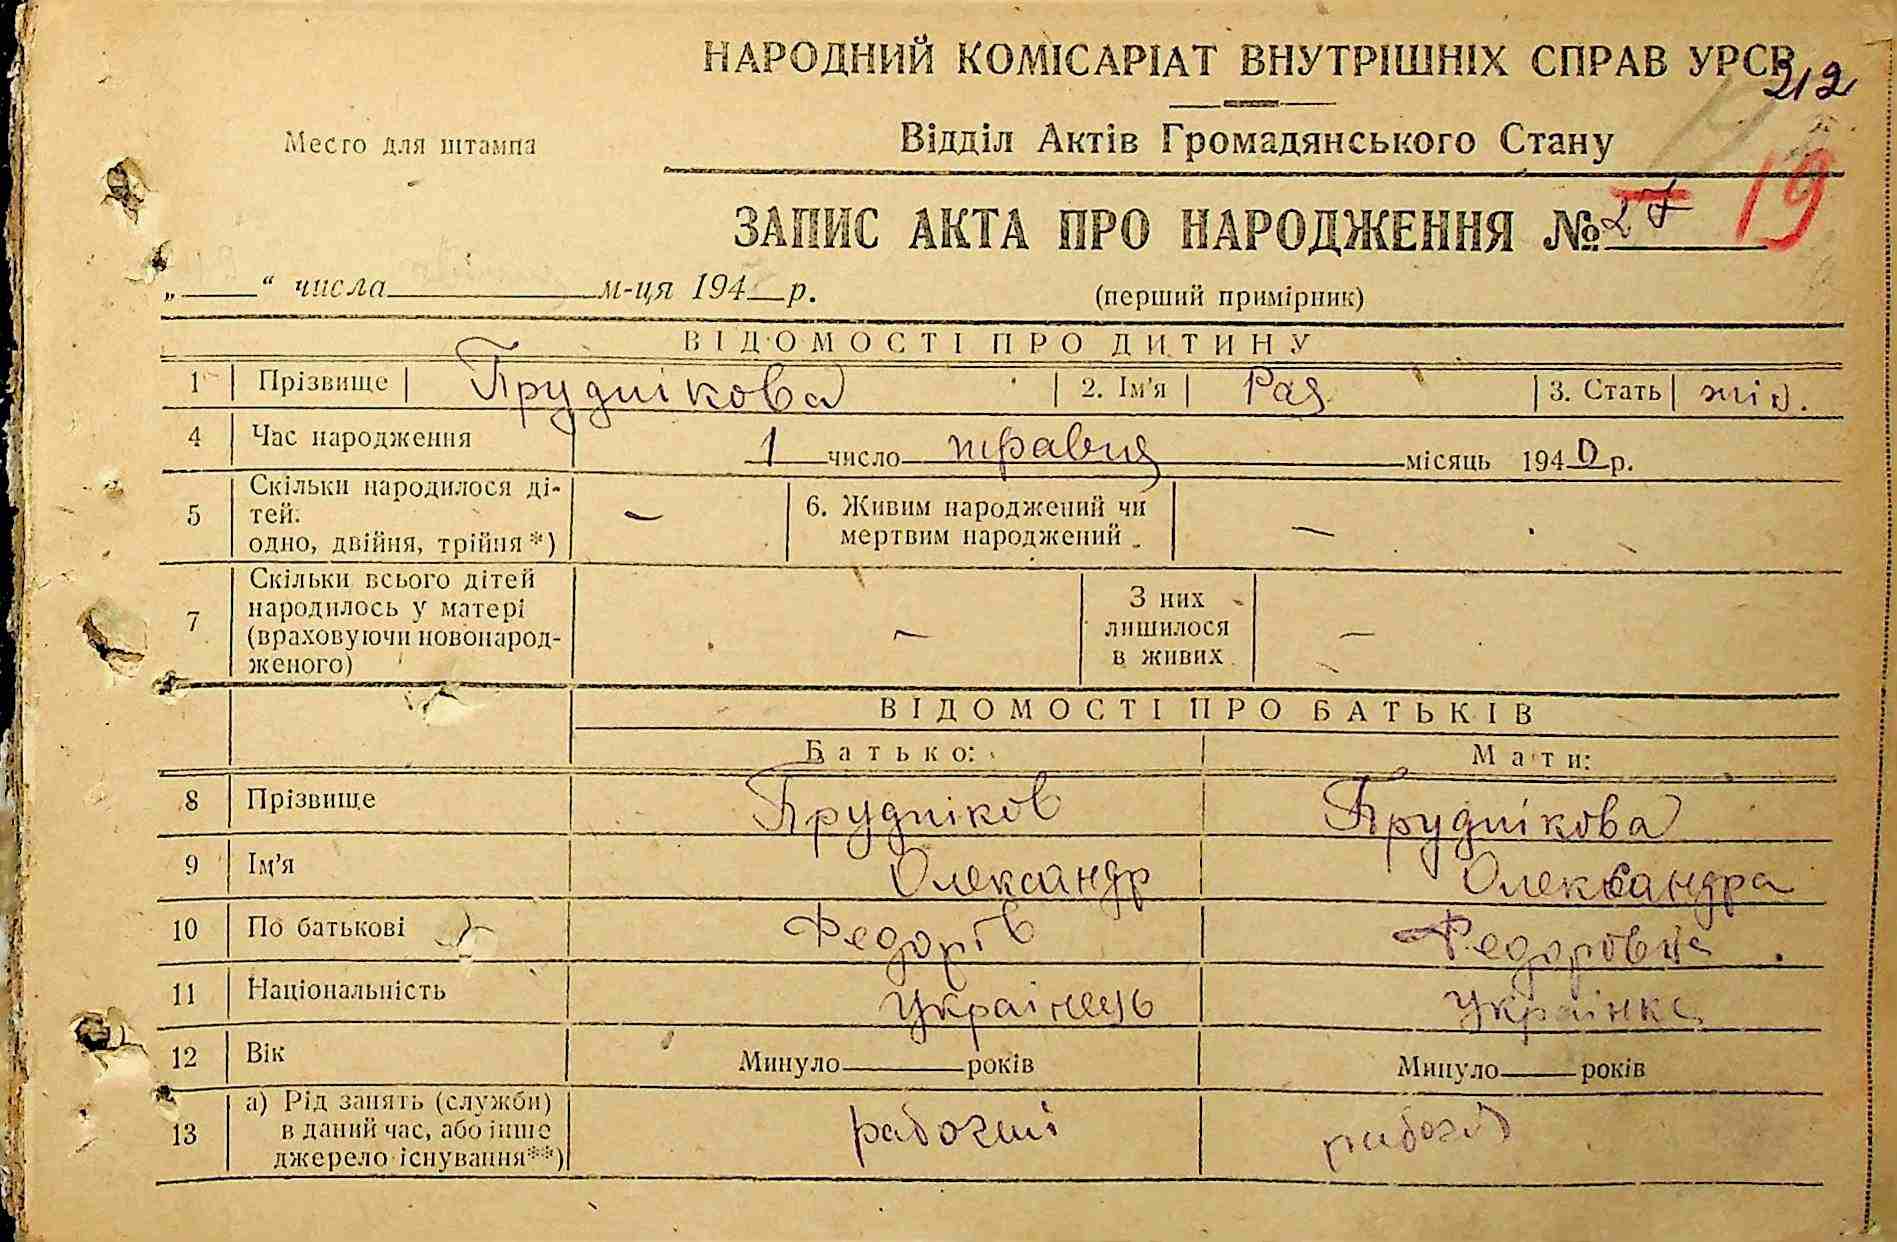 НАРОДНИЙ КОМІСАРІАТ ВНУТРІШНІХ СПРАВ УРСР
212
Место для штампа
Відділ Актів Громадянського Стану
19
ЗАПИС АКТА ПРО НАРОДЖЕННЯ № 27
„____“ числа____м-ця 194__р.
(перший примірник)
ВІДОМОСТІ ПРО ДИТИНУ
1 Прізвище Пруднікова 2. Ім'я Рая 3. Стать жін.
4 Час народження 1 число травня місяць 1940 р.
5 Скільки народилося ді-
тей:
одно, двійня, трійня*) —
6. Живим народжений чи
мертвим народжений —
7 Скільки всього дітей
народилось у матері
(враховуючи новонарод-
женого) —
З них
лишилося
в живих —
ВІДОМОСТІ ПРО БАТЬКІВ
Батько: Мати:
8 Прізвище Прудніков Пруднікова
9 Ім'я Олександр Олександра
10 По батькові Федорів Федоровна
11 Національність Українець Українка
12 Вік Минуло____років Минуло____років
13 а) Рід занять (служби)
в даний час, або інше
джерело існування**)
рабочий